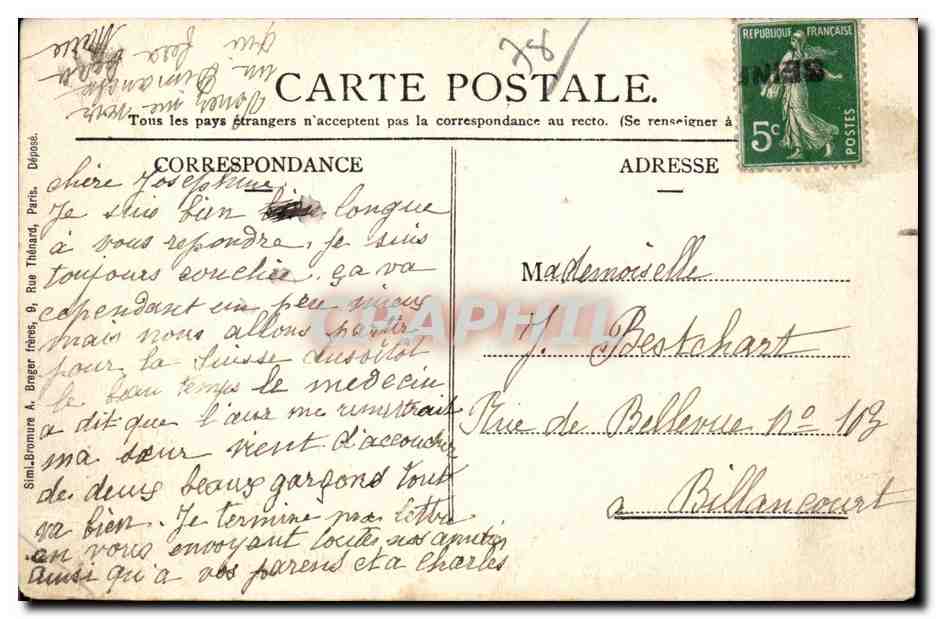 Venez me voir
un Dimanche
qui fera beau
Marie
78
CARTE POSTALE.
Tous les pays étrangers n'acceptent pas la correspondance au recto. (Se renseigner à
REPUBLIQUE FRANÇAISE
SEINE
5c
POSTES
CORRESPONDANCE
ADRESSE
chère Josephine
Je suis bien longue
à vous repondre, je suis
toujours couchée. ça va
cependant un peu mieux
mais nous allons partir
pour la Suisse aussitot
le beau temps le medecin
a dit que l'air me remettrait
ma sœur vient d'accoucher
de deux beaux garçons tout
va bien. Je termine ma lettre
en vous envoyant toutes nos amitiés
ainsi qu'a vos parens et a Charles
Mademoiselle
J. Bestchart
Rue de Bellevue No 103
a Billancourt
Simi-Bromure A. Breger frères, 9, Rue Thénard, Paris. Déposé.
CPAPHIL